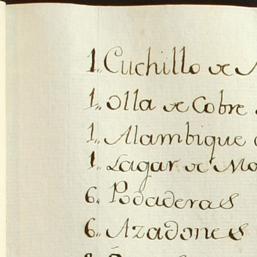 1,, Cuchillo de
1,, olla de Cobre
1,, Alambique
1,, Lagar de Mo
6,, Podaderas
6,, Azadones